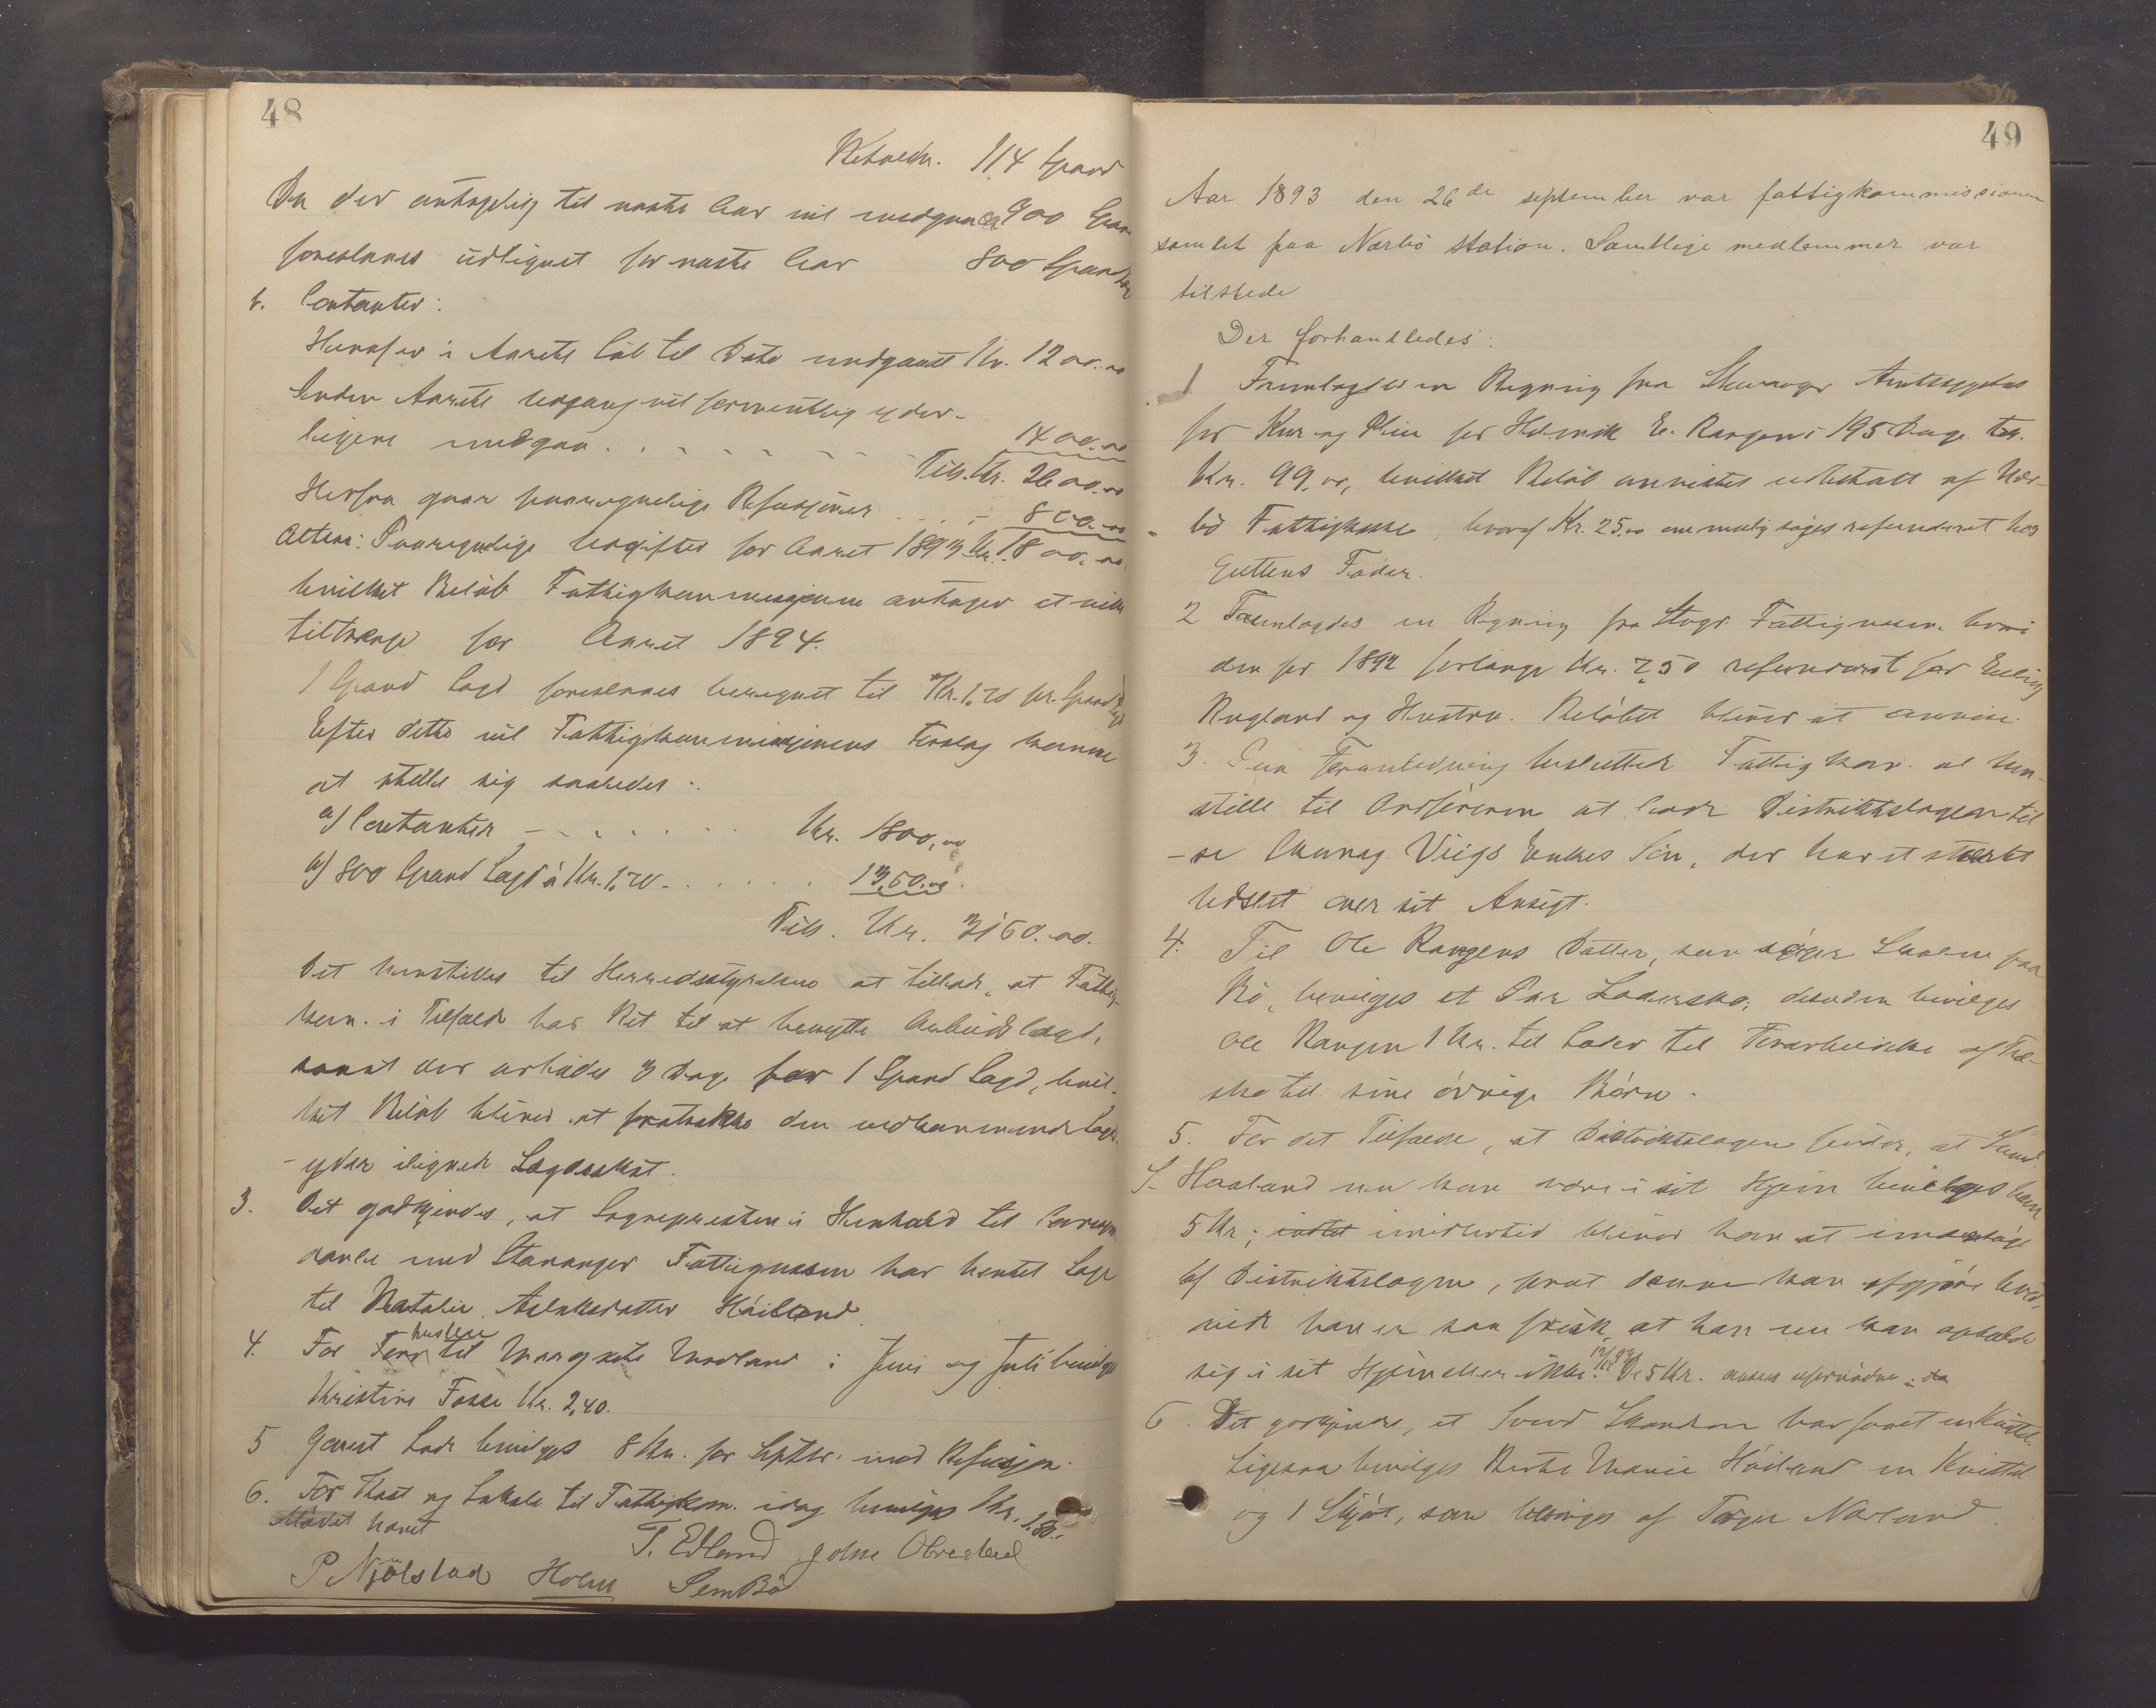 48
Behold. 114 Spand
Da der antagelig til næste Aar vil medgaa 900 Spand
foreslaaes udlignet for næste Aar 800 Spand
b. Contanter:
Heraf er i Aarets Løb til Dato medgaaet Kr. 1200.00
Inden Aarets Udgang vil formentlig yder-
ligere medgaa . . . . . . 1400.00
Tils. Kr. 2600.00
Herfra gaar paaregnelige Refusjoner . . . - 800.00
Altsaa: Paaregnelige Udgifter for Aaret 1893 Kr. 1800.00
hvilket Beløb Fattigkommissjonen antager at ville
tiltrænge for Aaret 1894.
1 Spand Lagd foreslaaes beregnet til Kr. 1,70 pr. Spand
Efter dette vil Fattigkommissjonens Forslag komme
at stille sig saaledes:
a) Contanter - - . . . . Kr. 1800,00
b) 800 Spand Lagd à Kr. 1,70 - . . . . . 1360.00
Tils. Kr. 3160.00.
Det henstilles til Herredsstyrelsen at tillade, at Fattig-
kom. i Tilfælde har Ret til at benytte Arbeidslægd,
saaat der arbeides 3 Dage for 1 Spand Lagd, hvil-
ket Beløb bliver at fratrække den vedkommende Lagd-
yder ilignede Lagdsskat.
3. Det godkjendes, at Sognepresten i Henhold til Correspon
dance med Stavanger Fattigvæsen har hentet Læge
til Natalie Aslaksdatter Höiland.
4. For Forr til Margrete Undland i Juni og Juli bevilges
Kristine Fosse Kr. 2,40.
5 Gaust Lode bevilges 8 Kr. for Septbr. mod Refusjon.
6. For Kost og Lokale til Fattigkom. idag bevilges Kr. 1.50.-
Mødet hævet
T. Edland Johne Obrestad
P. Njölstad Holm SemBö
49
Aar 1893 den 26de september var fattigkommissionen
samlet paa Nærbö station. Samtlige medlemmer var
tilstede
Der forhandledes:
1 Fremlagdes en Regning fra Stavanger Amtssygehus
for Kur og Pleie for Henrik E. Rangen i 195 Dage
Kr. 99.00, hvilket Beløb anvistes udbetalt af Nær-
bö Fattigkasse, hvoraf Kr. 25.00 om mulig søges refunderet hos
Guttens Fader.
2 Fremlagdes en Regning fra Stavgr. Fattigvæsen hvori
den for 1892 forlanger Kr. 7,50 refunderet for Erling
Rugland og Hustru. Beløbet bliver at anvise.
3. I en Foranledning besluttede Fattigkom. at hen-
stille til Ordføreren at lade Distriktslægen til-
-se Viigs Enkes Søn, der har et stærkt
Udslet over sit Ansigt.
4. Til Ole Rangens Datter, som søger Skolen paa
Bö, bevilges et Par Lædersko, desuden bevilges
Ole Rangen 1 Kr. til Læder til Forarbeidelse af Træ-
sko til sine øvrige Børn.
5. For det Tilfælde, at Distriktslægen finder, at
S. Haaland nu kan være i sit Hjem bevilges ham
5 Kr; imidlertid bliver han at
af Distriktslægen, forat denne kan afgjøre hvor-
vidt han er saa frisk, at han nu kan opholde
sig i sit Hjem eller ikke. De 5 Kr. ansees ufornødne.
6. Det godkjendes, at Svend Skandsen har faaet en Kjittel.
Ligesaa bevilges Berte Marie Höiland en Kjittel
og 1 Skjört, som besørges af Torger Nærland.